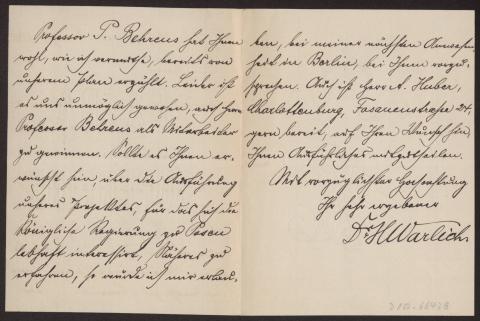 Professor P. Behrens hat Ihnen
wohl, wie ich vermuthe, bereits von
unserem Plan erzählt. Leider ist
es uns unmöglich gewesen, auch Herrn
Professor Behrens als Mitarbeiter
zu gewinnen. Sollte es Ihnen er-
wünscht sein, über die Ausführung
unseres Projektes, für das sich die
Königliche Regierung zu Posen
lebhaft interessirt, Näheres zu
erfahren, so würde ich mir erlau-
ben, bei meiner nächsten Anwesen-
heit in Berlin, bei Ihnen vorzu-
sprechen. Auch ist Herr A. Huber,
Charlottenburg, Fasanenstraße 24,
gern bereit, auf Ihren Wunsch hin,
Ihnen Ausführliches mitzutheilen.
Mit vorzüglichster Hochachtung
Ihr sehr ergebener
Dr H Warlich